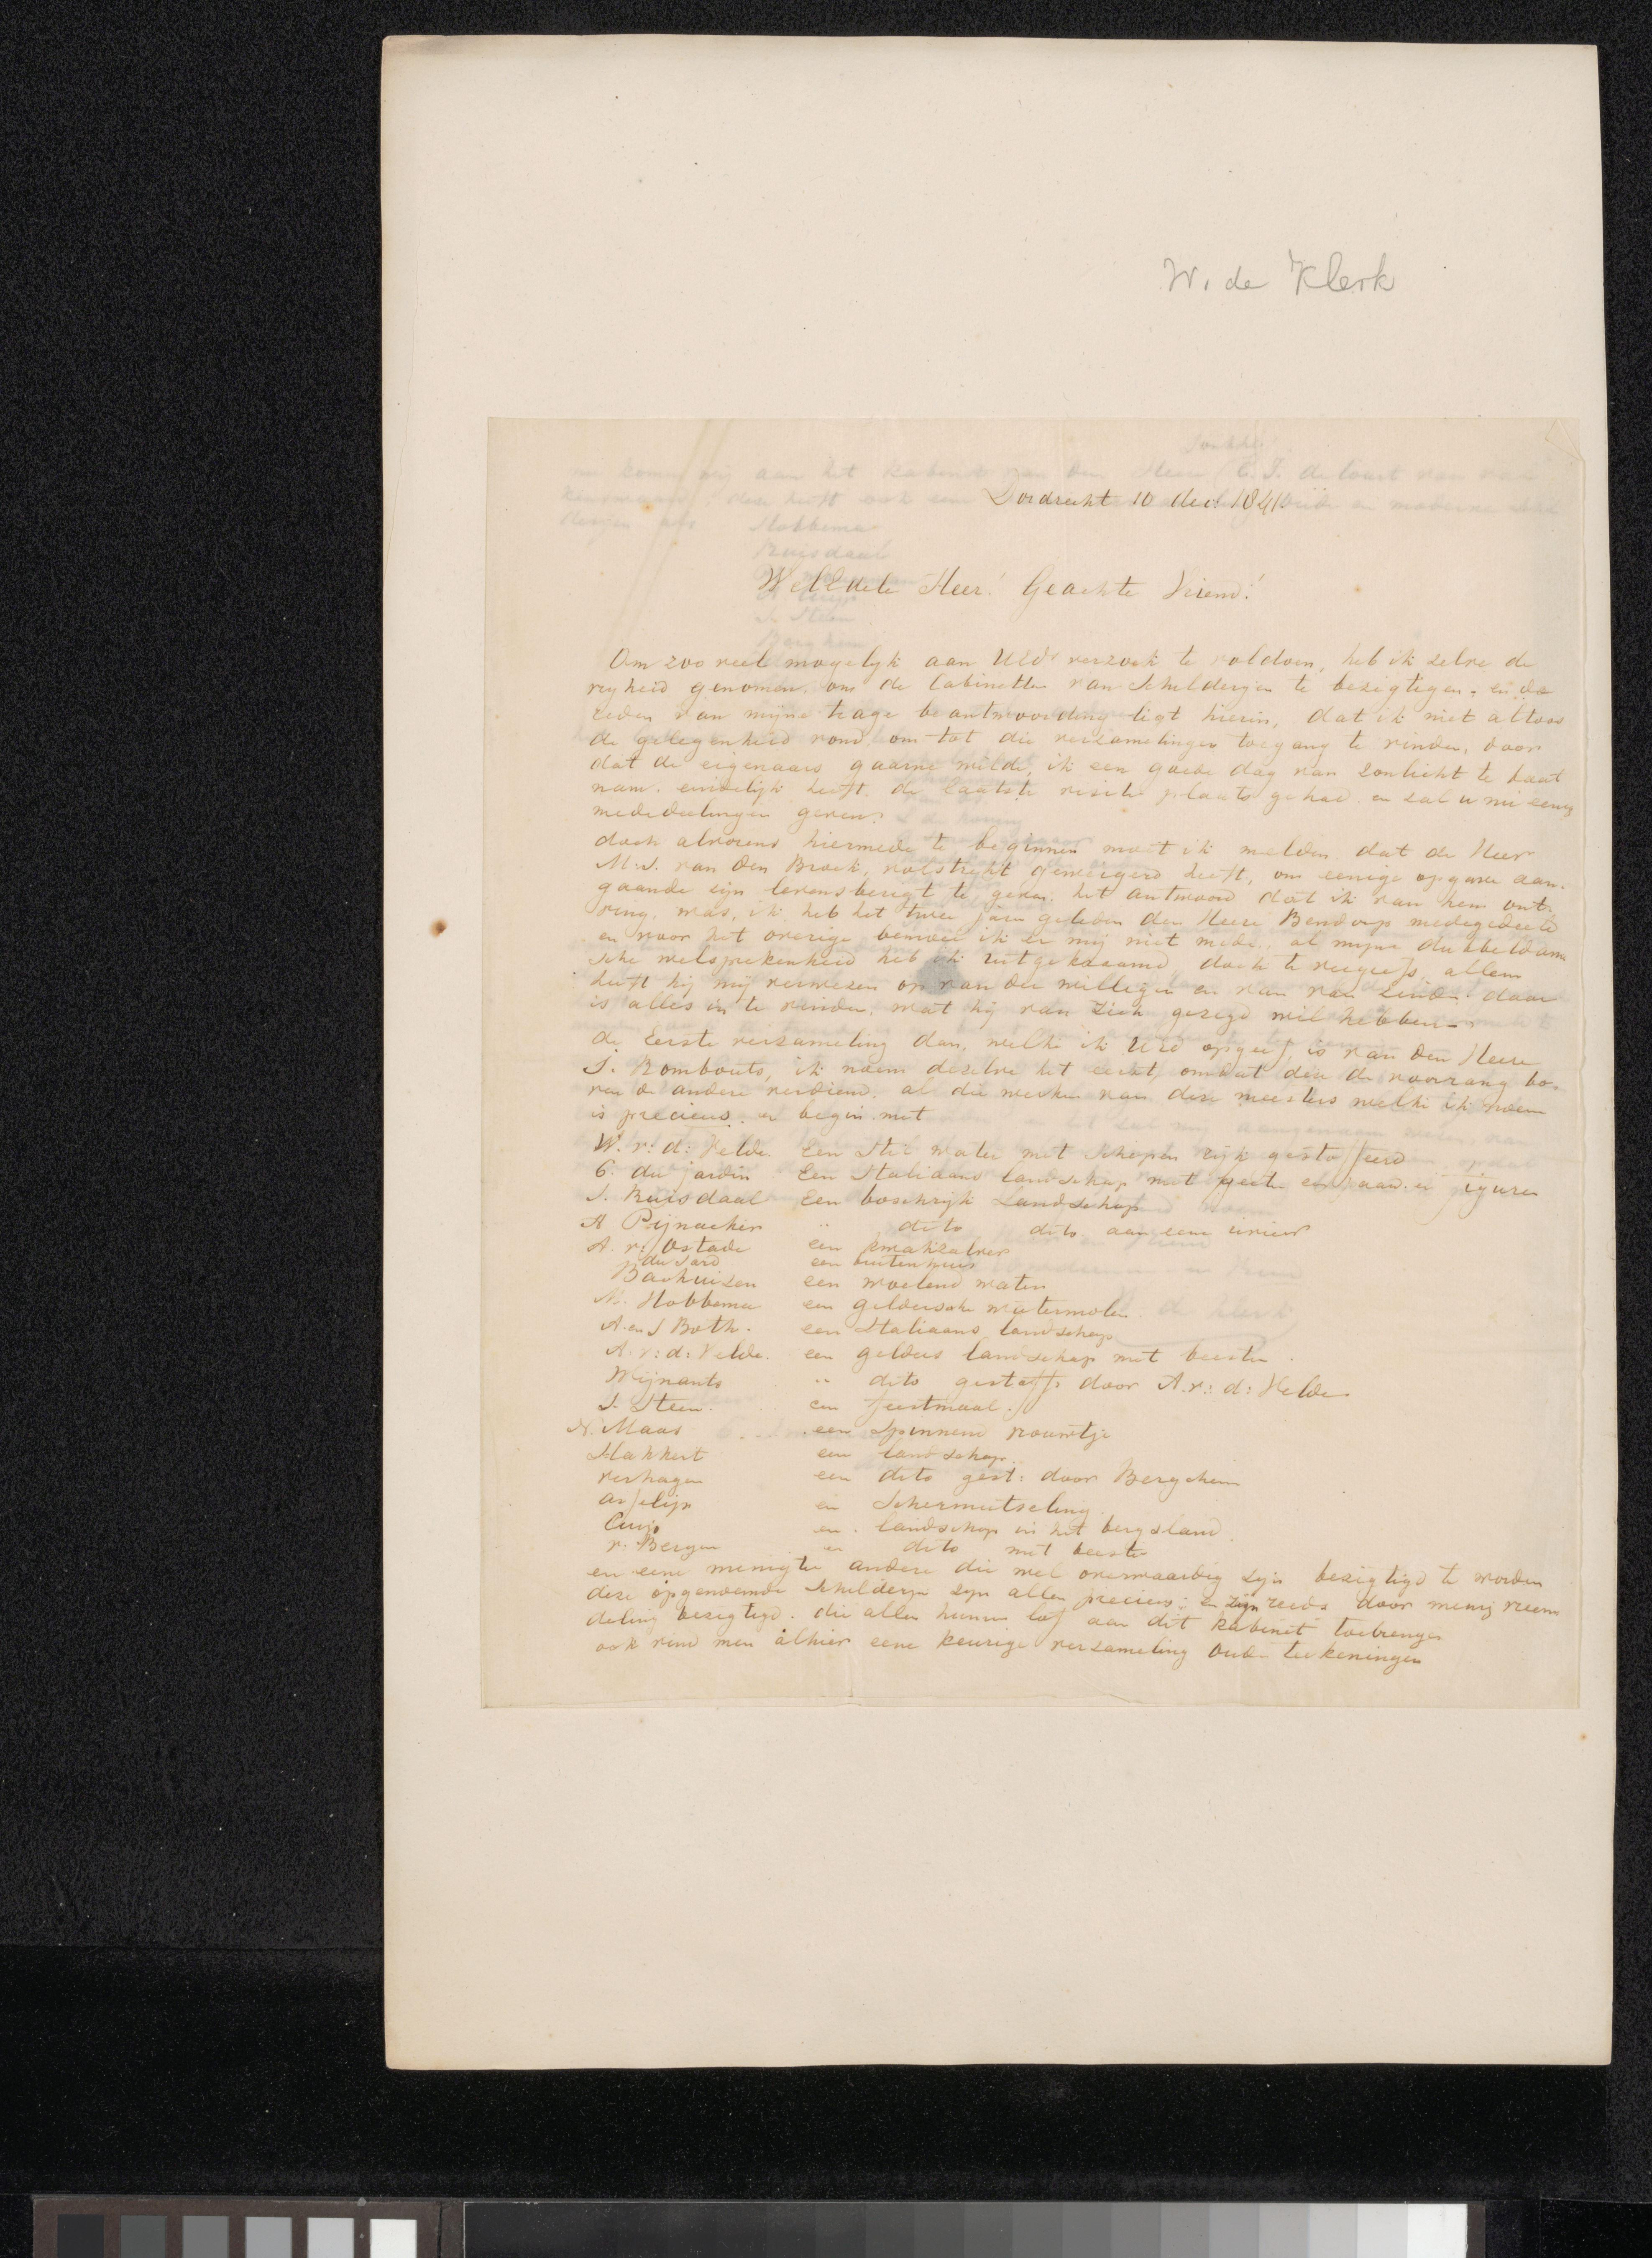 W. de Klerk
Dordrecht 10 dec: 1841
WelEdele Heer! Geachte Vriend!
Om zoo veel mogelyk aan UEds verzoek te voldoen, heb ik zelve de
vryheid genomen, om de Cabinetten van Schilderyen te bezigtigen, en de
reden van mijne trage beantwoording ligt hierin, dat ik niet altoos
de gelegenheid vond, om tot die verzamelingen toegang te vinden, daar
dat de eigenaars gaarne wilde, ik een goede dag van zonlicht te baat
nam. eindelijk heeft de laatste visite plaats gehad en zal u nu eenig
mededeelingen geven.
doch alvorens hiermede te beginnen moet ik melden dat de Heer
M.J. van den Broek, volstrekt geweigerd heeft, om eenige opgave aan-
gaande zijn levensberigt te geven. het antwoord dat ik van hem ont-
ving, was, ik heb het twee jaar geleden den Heere Bendorp medegedeeld
en voor het overige bemoei ik er mij niet mede, al mijne
sche welsprekenheid heb ik uitgekraamd, doch te vergeefs, alleen
heeft hij mij verwezen op van der Willigen en van van Einde. daar
is alles in te vinden, wat hij van zich gezegd wil hebben.
de Eerste verzameling dan, welke ik UEd opgeef, is van den Heere
J. Rombouts, ik noem dezelve het eerst, omdat deze de voorrang bo-
ven de andere verdiend. al die werken van deze meesters welke ik noem
is precieus. en begin met
W. v: d: Velde. Een Stil water met Schepen rijk gestoffeerd
C. du jardin Een Italiaans landschap met geite en paard en figuren
J. Ruisdaal Een boschrijk Landschap
A Pijnacker " dito dito aan eene rivier
A. v: Ostade een
du Sard een buitenhuis
Backuizen een woelend water
M. Hobbema een geldersche watermolen.
A. en J Both. een Italiaans landschap
A. v: d: Velde. een gelders landschap met beesten.
Wijnants " dito gestoff: door A. v: d: Velde
J. Steen. een feestmaal.
N. Maas een Spinnend vrouwtje
Hakkert een landschap.
verhagen een dito gest: door Bergchem
asselijn een Schermutseling.
Cuijp een landschap in het bergsland.
v: Bergen een dito met beesten
en eene menigte andere die wel overwaardig zijn bezigtigd te worden
deze opgenoemde Schilderijen zijn allen precieus; en zijn reeds door menig vreem
deling bezigtigd. die allen hunne lof aan dit kabinet toebrengen
ook vind men alhier eene keurige verzameling oude teekeningen